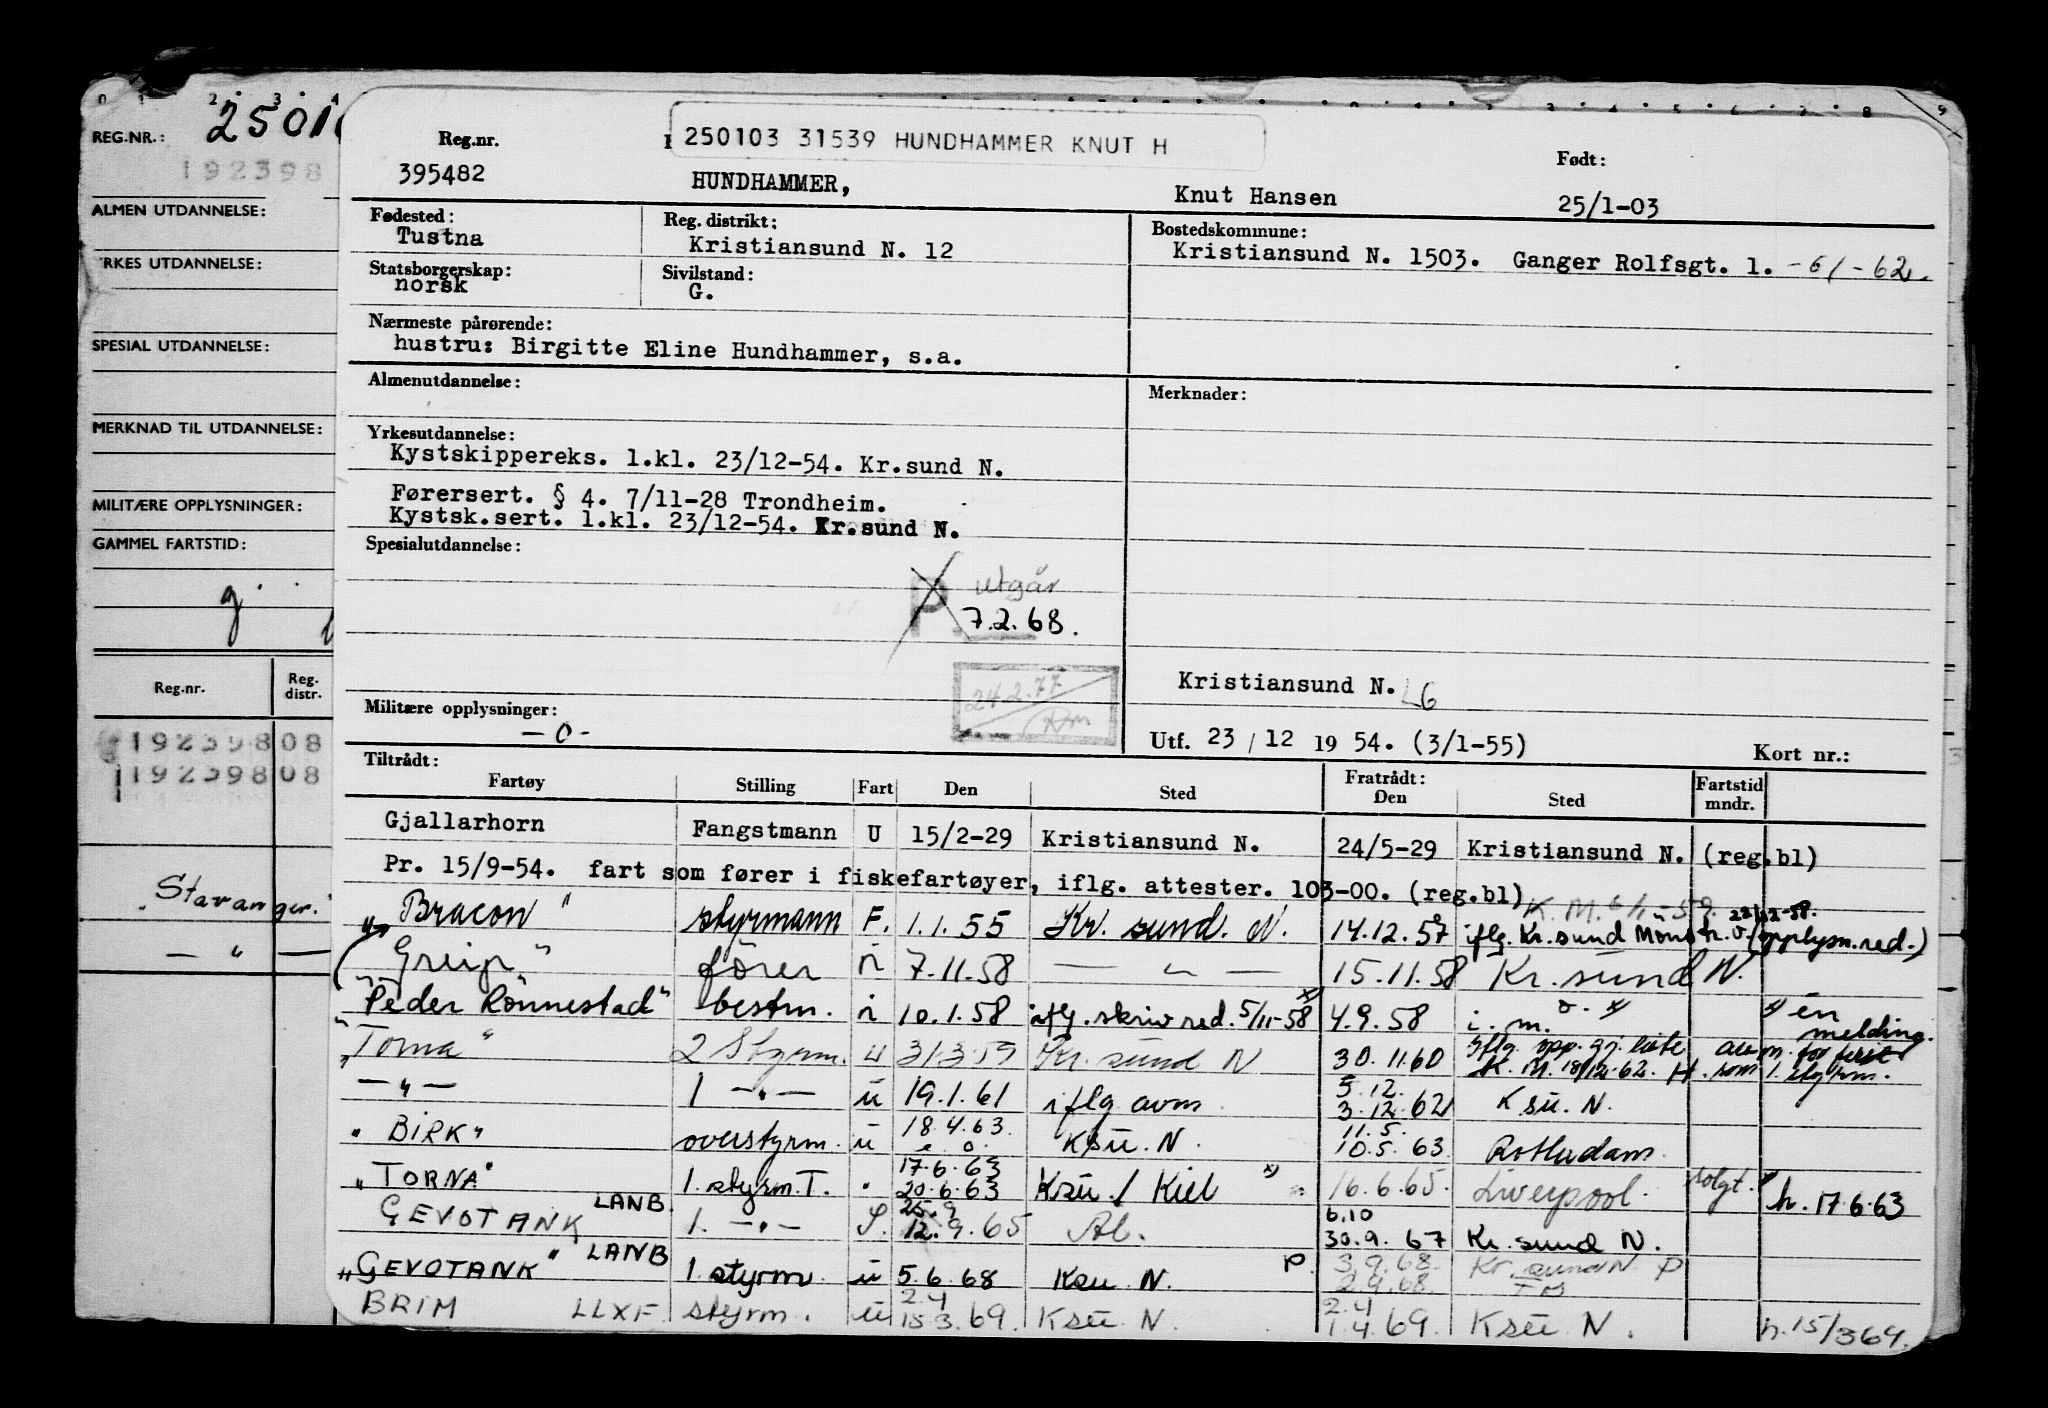 REG.NR.: 2501
192398
ALMEN UTDANNELSE:
RKES UTDANNELSE:
SPESIAL UTDANNELSE:
MERKNAD TIL UTDANNELSE:
MILITÆRE OPPLYSNINGER:
GAMMEL FARTSTID:
g.
Reg.nr. Reg. distr.
192398 08
192398 08
"Stavanger."
— " —
250103 31539 HUNDHAMMER KNUT H
Reg.nr. Født:
395482 HUNDHAMMER, Knut Hansen 25/1-03
Fødested: Reg. distrikt: Bostedskommune:
Tustna Kristiansund N. 12 Kristiansund N. 1503. Ganger Rolfsgt. 1. -61-62.
Statsborgerskap: Sivilstand:
norsk G.
Nærmeste pårørende:
hustru: Birgitte Eline Hundhammer, s.a.
Almenutdannelse: Merknader:
Yrkesutdannelse:
Kystskippereks. 1.kl. 23/12-54. Kr.sund N.
Førersert. § 4. 7/11-28 Trondheim.
Kystsk.sert. 1.kl. 23/12-54. Kr.sund N.
Spesialutdannelse:
P. utgår
7.2.68.
24.2.77
Kristiansund N. 6
Militære opplysninger:
-0-
Utf. 23 / 12 19 54. (3/1-55) Kort nr.:
Tiltrådt: Fratrådt: Fartstid
Fartøy Stilling Fart Den Sted Den Sted mndr.
Gjallarhorn Fangstmann U 15/2-29 Kristiansund N. 24/5-29 Kristiansund N. (reg.bl)
Pr. 15/9-54. fart som fører i fiskefartøyer, iflg. attester. 103-00. (reg.bl)
"Bracon" styrmann F. 1.1.55 Kr. sund. N. 14.12.57 iflg. Kr.sund Mönstr.v. (opplysn.red.)
"Greip" fører i 7.11.58 — " — 15.11.58 Kr. sund N.
"Peder Rönnestad" bestm. i 10.1.58 iflg. skriv red. 5/11-58 x) 4.9.58 i. m. o. x) x) en melding.
"Torna" 2 Styrm. u 31.3.59 Kr. sund N 30.11.60 iflg. opp. gj. liste
K. M. 18/12-62. som 1. styrm.
— " — 1 — " — u 19.1.61 iflg avm 5.12.
3.12.62 Ksu. N.
"BIRK" overstyrm. u 18.4.63. Ksu. N. 11.5.
10.5.63 Rotterdam.
"TORNA" 1. styrm. T. " 17.6.63
20.6.63 Ksu. / Kiel x) 16.6.65. Liverpool. solgt. x) h. 17.6.63
GEVOTANK LANB. 1. — " — S. 25.9
12.9.65 Al. 6.10
30.9.67 Kr. sund N.
"GEVOTANK" LANB 1. styrm. u 5.6.68 Ksu. N. P. 3.9.68.
2.9.68. Kr. sund N P
BRIM LLXF styrm. u 2.4
15.3.69. Ksu N. 2.4
1.4.69. Ksu N. h. 15/3 69.